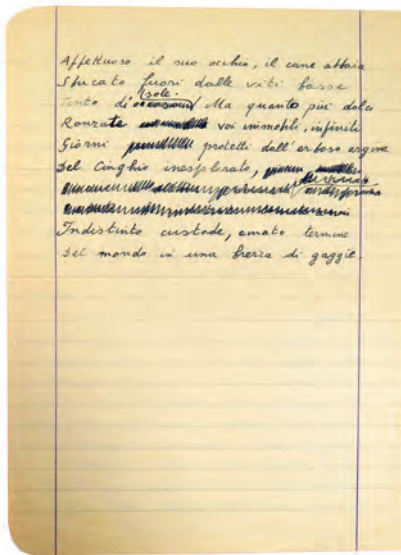 Affettuoso il suo occhio, il cane abbaia
Sbucato fuori dalle viti basse
sole.
Tinto di Ma quanto più dolci
Ronzate voi immobili, infiniti
Giorni protetti dall'erboso argine
Del Cinghio inesplorato,
Indistinto custode, amato termine
Del mondo in una brezza di gaggìe.